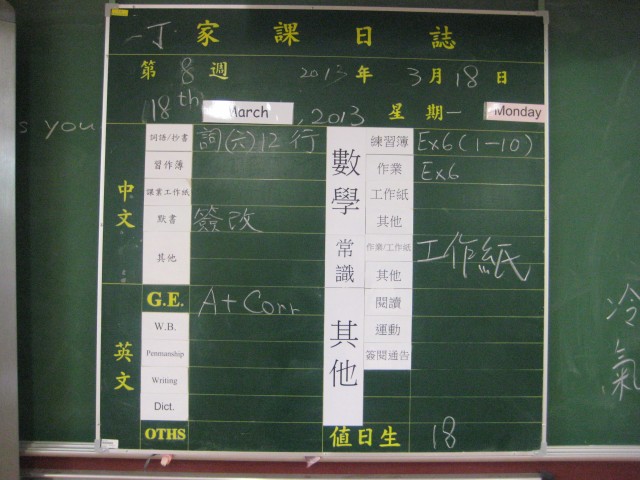 一丁 家課日誌
第 8 週 2013 年 3 月 18 日
(18th) March , 2013 星期一 Monday
s you
中文
詞語/抄書 詞(六)12行
習作簿
課業工作紙
默書 簽改
其他
英文
G.E. A + Corr
W.B.
Penmanship
Writing
Dict.
OTHS
數學
練習簿 Ex6(1-10)
作業 Ex6
工作紙
其他
常識
作業/工作紙 工作紙
其他
其他
閱讀
運動
簽閱通告
值日生 18
冷氣